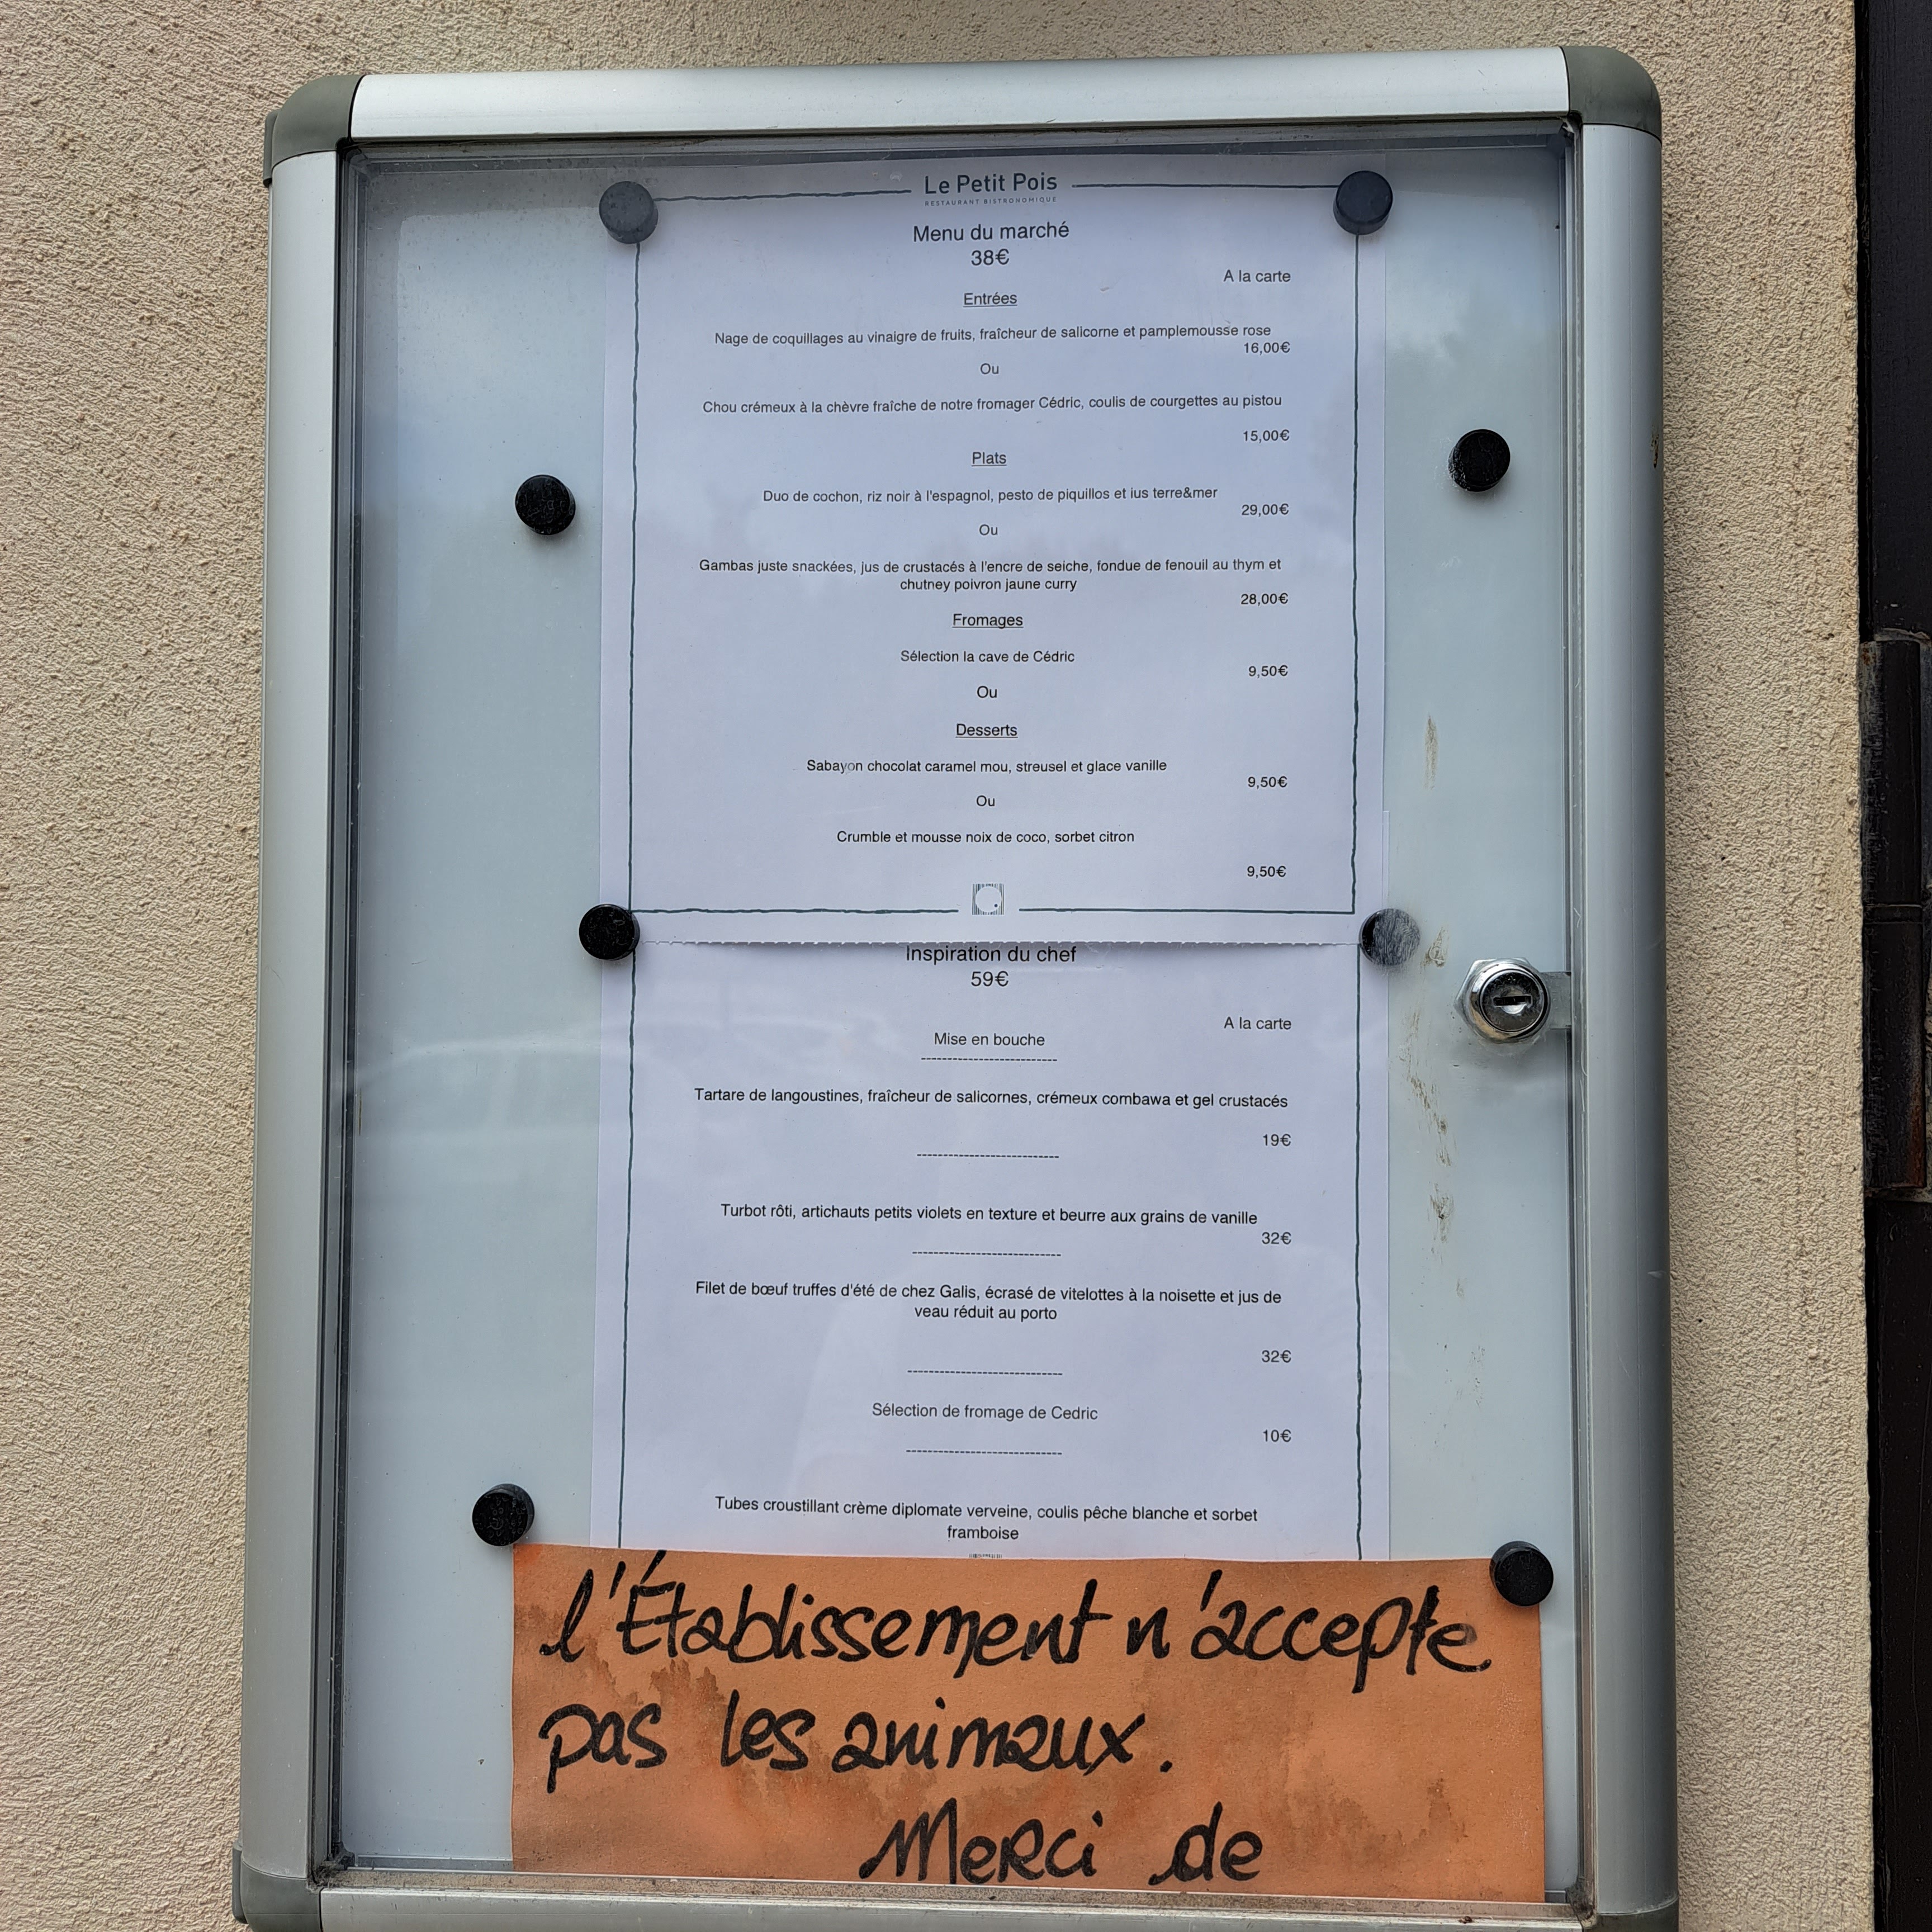 Le Petit Pois
RESTAURANT BISTRONOMIQUE
Menu du marché
38€
A la carte
Entrées
Nage de coquillages au vinaigre de fruits, fraîcheur de salicorne et pamplemousse rose
16,00€
Ou
Chou crémeux à la chèvre fraîche de notre fromager Cédric, coulis de courgettes au pistou
15,00€
Plats
Duo de cochon, riz noir à l'espagnol, pesto de piquillos et ius terre&mer
29,00€
Ou
Gambas juste snackées, jus de crustacés à l'encre de seiche, fondue de fenouil au thym et
chutney poivron jaune curry
28,00€
Fromages
Sélection la cave de Cédric
9,50€
Ou
Desserts
Sabayon chocolat caramel mou, streusel et glace vanille
9,50€
Ou
Crumble et mousse noix de coco, sorbet citron
9,50€
Inspiration du chef
59€
A la carte
Mise en bouche
---------------------------
Tartare de langoustines, fraîcheur de salicornes, crémeux combawa et gel crustacés
19€
---------------------------
Turbot rôti, artichauts petits violets en texture et beurre aux grains de vanille
32€
---------------------------
Filet de bœuf truffes d'été de chez Galis, écrasé de vitelottes à la noisette et jus de
veau réduit au porto
32€
---------------------------
Sélection de fromage de Cedric
10€
---------------------------
Tubes croustillant crème diplomate verveine, coulis pêche blanche et sorbet
framboise
l'Établissement n'accepte
pas les animaux.
Merci de